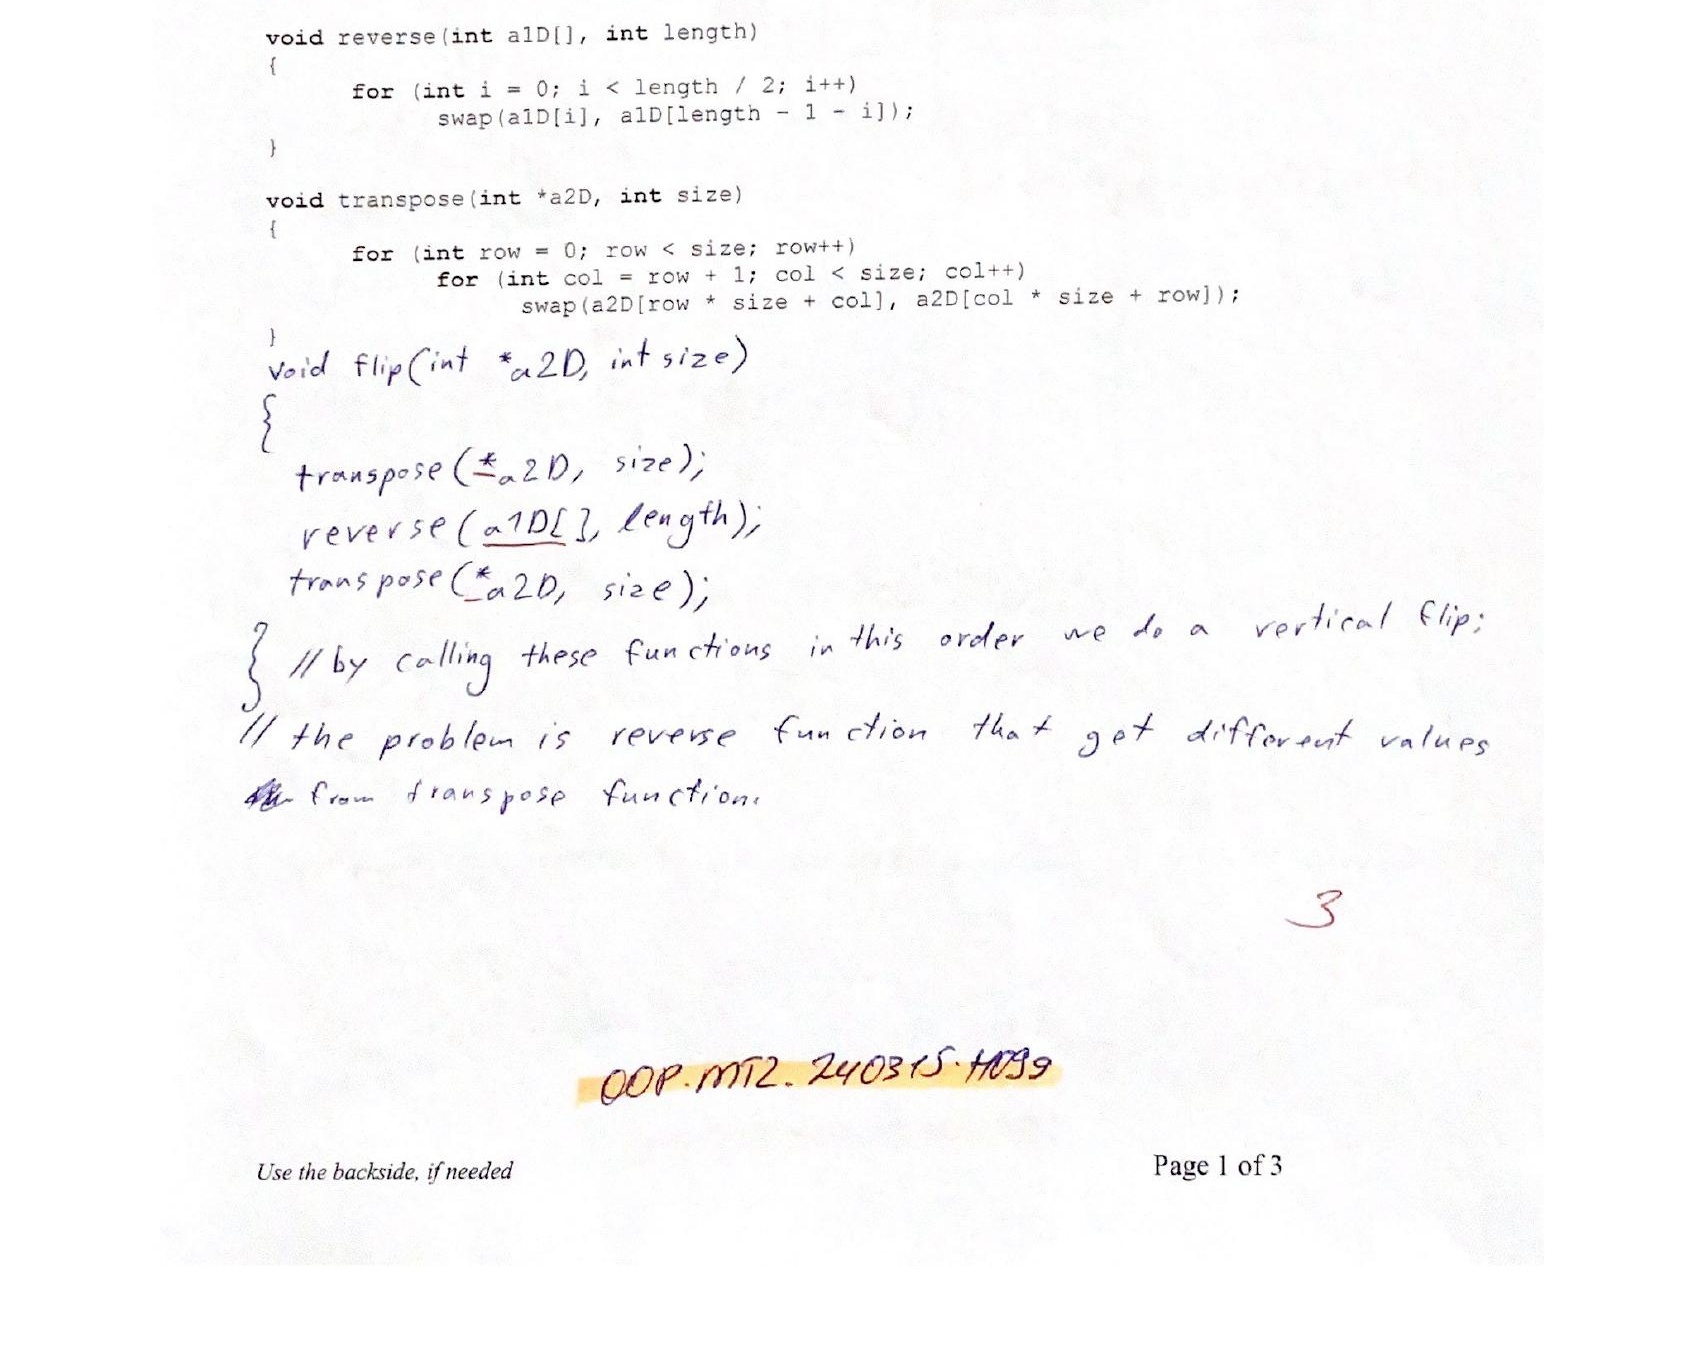 void reverse(int a1D[], int length)
{
for (int i = 0; i < length / 2; i++)
swap(a1D[i], a1D[length - 1 - i]);
}
void transpose(int *a2D, int size)
{
for (int row = 0; row < size; row++)
for (int col = row + 1; col < size; col++)
swap(a2D[row * size + col], a2D[col * size + row]);
}
void flip(int *a2D, int size)
{
transpose(*a2D, size);
reverse(a1D[], length);
transpose(*a2D, size);
} // by calling these functions in this order we do a vertical flip;
// the problem is reverse function that get different values
from transpose function.
3
OOP.MT2.240315.H099
Use the backside, if needed
Page 1 of 3